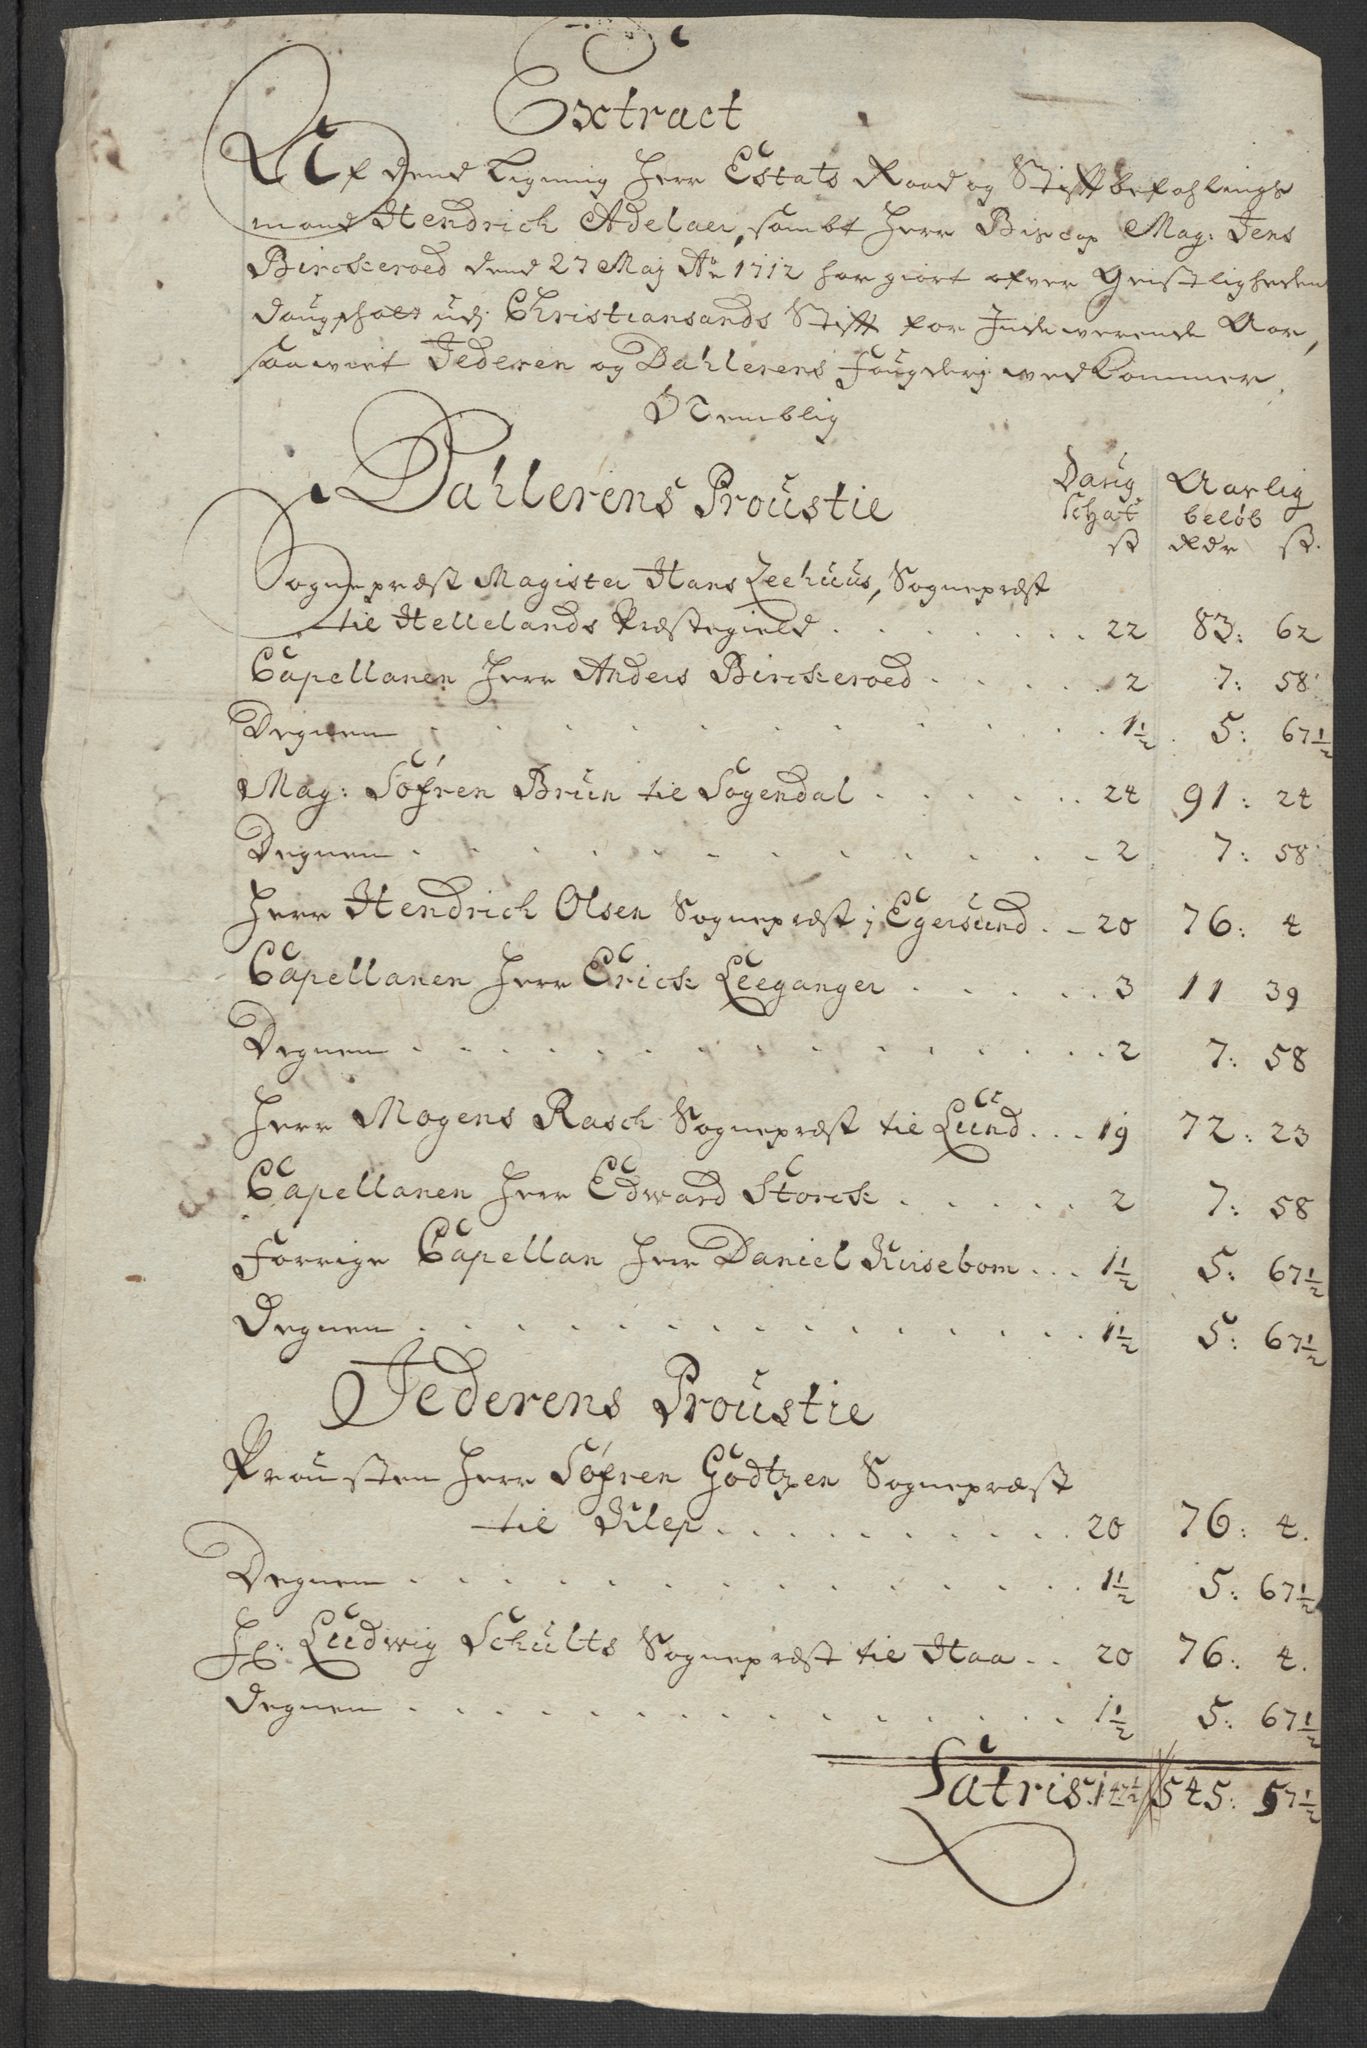 Extract
Af dend Ligning Herr Estats Raad og Stiftbefahlings
mand Hendrich Adelaer, sambt Herr Biscop Mag: Jens
Birckeroed dend 27 Maj Ao 1712 har giort ofver Geistligheden
Daugskatt udj Christiansands Stift for Indeværende Aar,
saawit Jederen og Dahlerens Fougderj wedkommer.
Nemblig
Dahlerens Proustie
Daug Aarlig
Schat beløb
ß Rdr ß.
Sognepræst Magister Hans Zeehuus, Sognepræst
til Hellelands Præstegield . . . . . . . . 22 83: 62
Capellanen Herr Anders Birckeroed . . . . . 2 7: 58
Degnen . . . . . . . . . . . . 1½ 5: 67½
Mag: Søfren Brun til Sogendal . . . . . . 24 91: 24
Degnen . . . . . . . . . . . . 2 7: 58
Herr Hendrich Olsen Sognepræst j Egersund . . 20 76: 4
Capellanen Herr Erick Leeganger . . . . . 3 11 39
Degnen . . . . . . . . . . . . 2 7: 58
Herr Mogens Rasch Sognepræst til Lund . . . 19 72: 23
Capellanen Herr Edward Storck . . . . . 2 7: 58
Forrige Capellan Herr Daniel Kirsebom . . . 1½ 5: 67½
Degnen . . . . . . . . . . . . 1½ 5: 67½
Jederens Proustie
Prousten Herr Søfren Godtzen Sognepræst
til Klep . . . . . . . . . . 20 76: 4.
Degnen . . . . . . . . . . . . 1½ 5: 67½
Hr: Ludwig Schults Sognepræst til Haa . . 20 76: 4.
Degnen . . . . . . . . . . . . 1½ 5: 67½
Latris 545: 57½